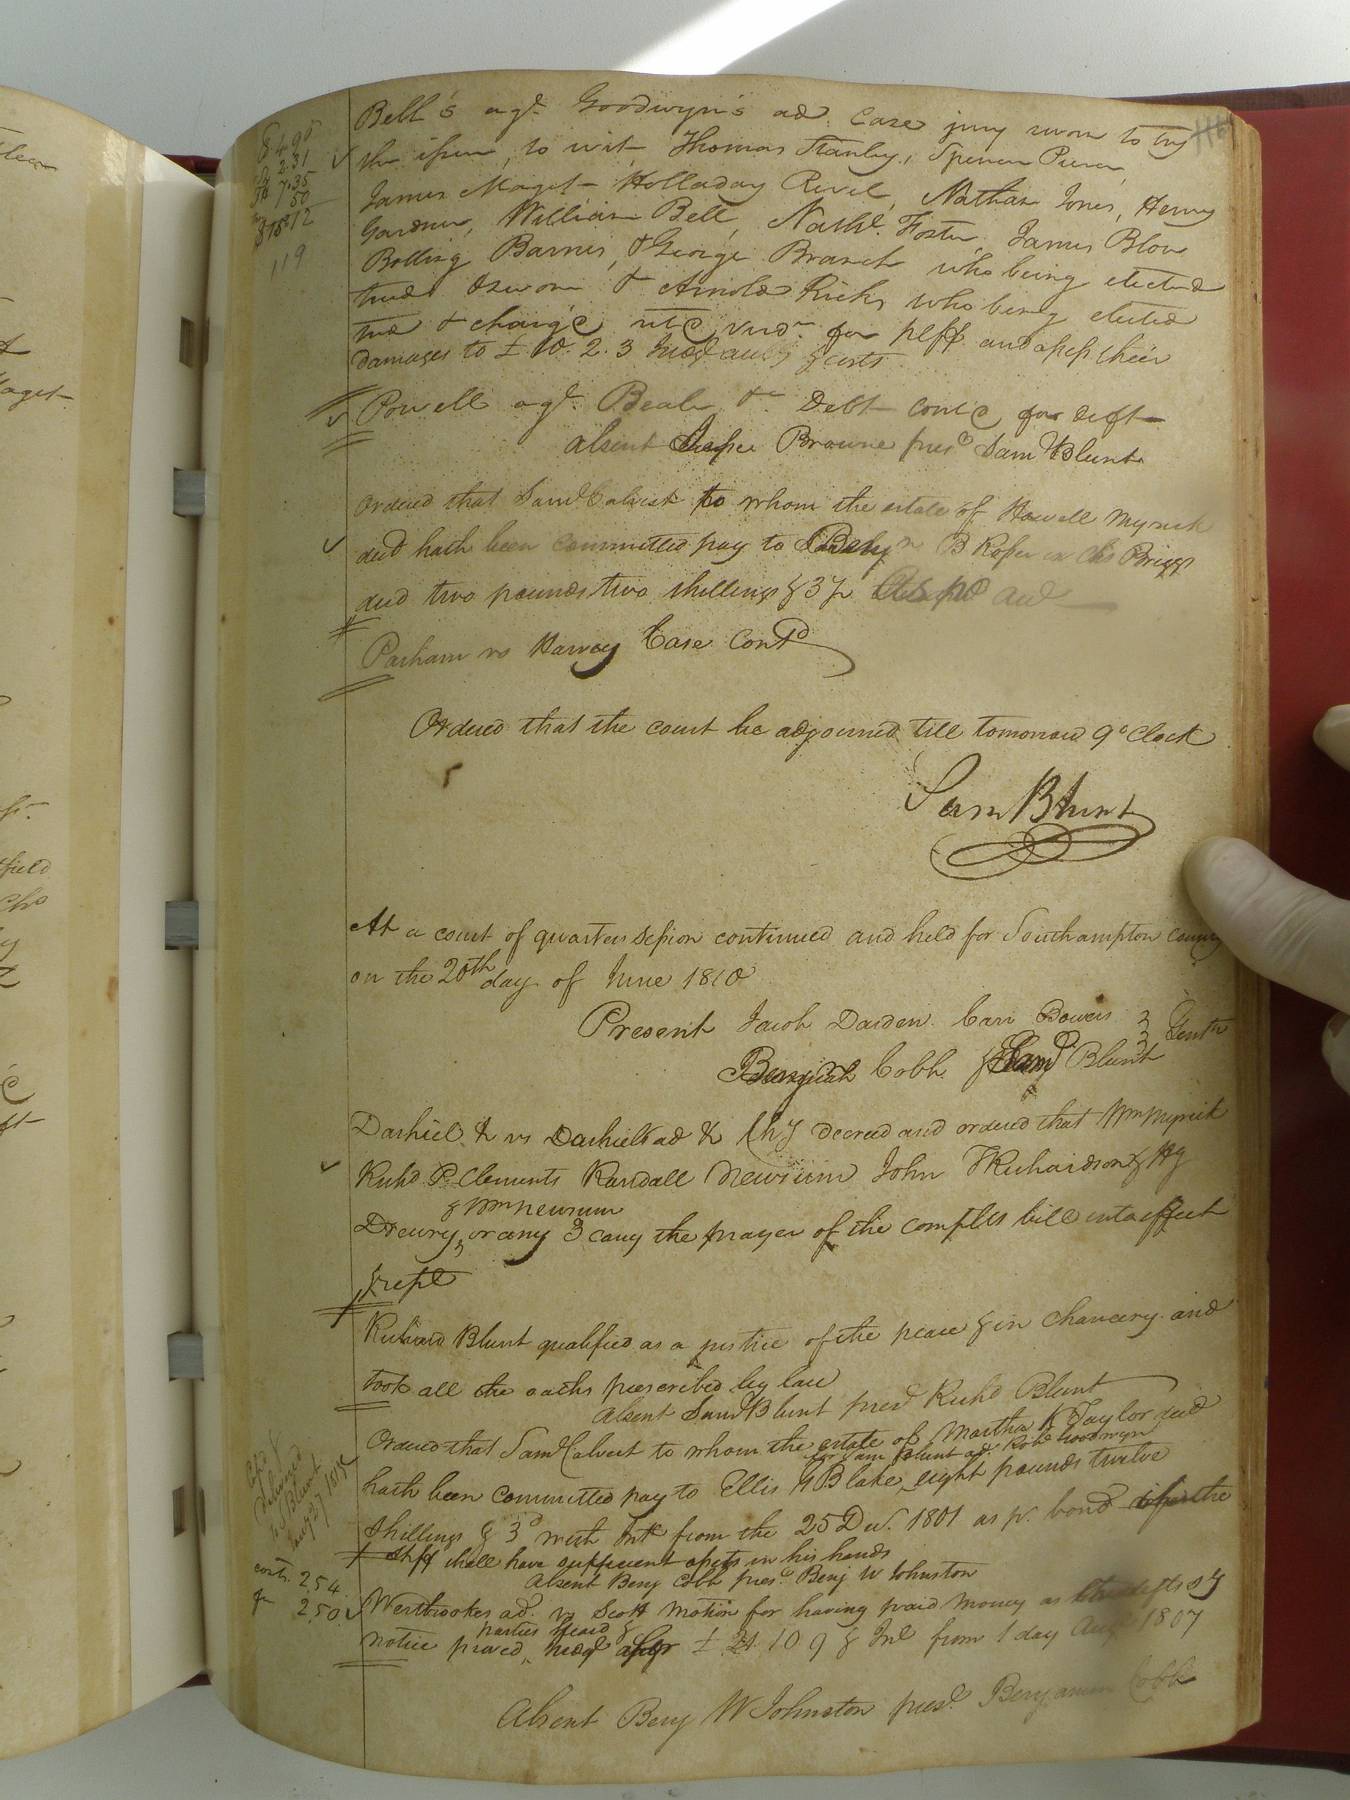 Bell's agt. Goodwyn's ad. Case jury sworn to try
the issue, to wit, Thomas Stanley, Spencer Pierce,
James Maget Holladay Revel, Nathan Jones, Henry
Gardner, William Bell, Nathl. Foster, James Blow
Bolling Barnes, & George Branch who being elected
tried & sworn & Arnold Ricks who being elected
tried & charg'd verdt. for plff and assess their
damages to £ 10. 2. 3 & costs
Powell agt. Beale &c Debt cont'd for deft
absent Jesse Browne presd Saml Blunt
Ordered that Saml Calvert to whom the estate of Howell Myrick
decd hath been committed pay to Benjn B Roper Briggs
decd two pounds two shillings & 3
Parham vs Harvey Case Contd
Ordered that the court be adjourned till tomorrow 9 o Clock
Sam Blunt
At a court of quarter session continued and held for Southampton County
on the 20th day of June 1810
Present Jacob Darden Carr Bowers
Gentn
Benjamin Cobb & Saml Blunt
Dashiel & vs Dashiels ad & Chy decreed and ordered that Wm Myrick
Richd P. Clements Randall Newsum John T Richardson & Hy
& Wm Newsum
Drewry, or any 3 carry the prayer of the complts bill into effect
& rept
Richard Blunt qualified as a justice of the peace & in chancery and
took all the oaths prescribed by law
Absent Saml Blunt presd Richd Blunt
Ordered that Saml Calvert to whom the estate of Martha K Taylor decd
for Sam Blunt ad. Robt Goodwyn
hath been committed pay to Ellis G Blake, eight pounds twelve
shillings & 3d with Int from the 25 Dec. 1801 as pr. bond if the
shff shall have sufficient assets in his hands
Absent Benj Cobb presd. Benj W Johnston
costs. 2.54
2.50
Westbrookes ad. vs Scott motion for having paid money as
parties heard &
notice proved, £ 21 10 9 & Int from 1 day Augt 1807
Absent Benj W Johnston presd. Benjamin Cobb